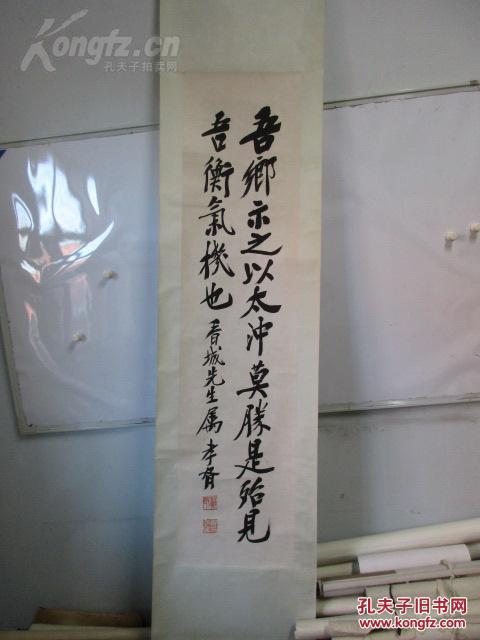 Kongfz.cn
孔夫子拍卖网
吾鄉示之以太沖莫勝是殆見
吾衡氣機也 春城先生属 孝胥
孔夫子旧书网
www.kongfz.com